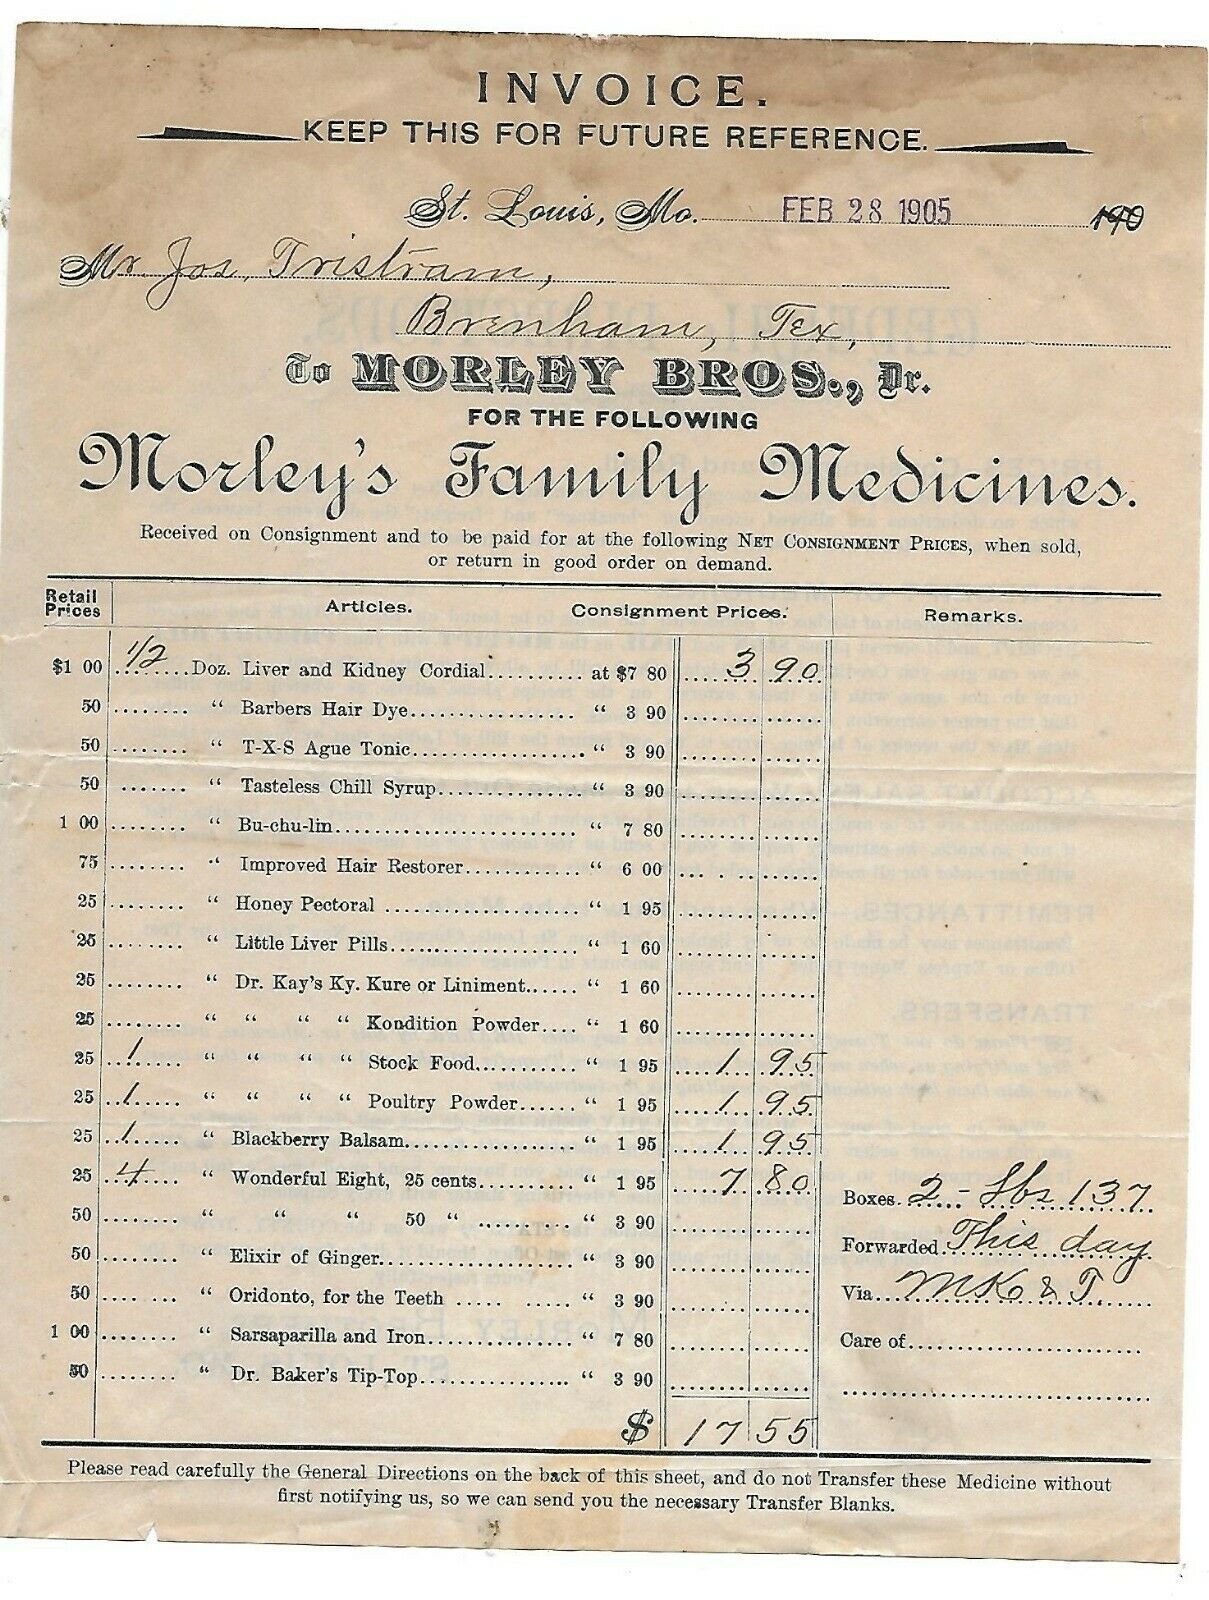 INVOICE.
KEEP THIS FOR FUTURE REFERENCE.
St. Louis, Mo. FEB 28 1905 190
Mr. Jos. Tristram,
Brenham, Tex,
To MORLEY BROS., Dr.
FOR THE FOLLOWING
Morley's Family Medicines.
Received on Consignment and to be paid for at the following NET CONSIGNMENT PRICES, when sold,
or return in good order on demand.
Retail Prices Articles. Consignment Prices. Remarks.
$1 00 1/2 Doz. Liver and Kidney Cordial.......... at $7 80 3 90
50 ........ “ Barbers Hair Dye................. “ 3 90
50 ........ “ T-X-S Ague Tonic.................. “ 3 90
50 ....... “ Tasteless Chill Syrup............... “ 3 90
1 00 ........ “ Bu-chu-lin........................... “ 7 80
75 ........ “ Improved Hair Restorer............ “ 6 00
25 ........ “ Honey Pectoral ..................... “ 1 95
25 ........ “ Little Liver Pills..................... “ 1 60
25 ........ “ Dr. Kay's Ky. Kure or Liniment...... “ 1 60
25 ........ “ “ “ “ Kondition Powder.... “ 1 60
25 1 “ “ “ “ Stock Food.......... “ 1 95 1 95
25 1 “ “ “ “ Poultry Powder...... “ 1 95 1 95
25 1 “ Blackberry Balsam................. “ 1 95 1 95
25 4 “ Wonderful Eight, 25 cents.......... “ 1 95 7 80
Boxes. 2 - Lbs 137
50 ........ “ “ “ 50 “ .......... “ 3 90
Forwarded. This day
50 ........ “ Elixir of Ginger.................... “ 3 90
50 .... ... “ Oridonto, for the Teeth ..... ...... “ 3 90
Via.. M K & T.
1 00 ........ “ Sarsaparilla and Iron............... “ 7 80
Care of........................
50 ........ “ Dr. Baker's Tip-Top................ “ 3 90
$ 17 55
Please read carefully the General Directions on the back of this sheet, and do not Transfer these Medicine without
first notifying us, so we can send you the necessary Transfer Blanks.